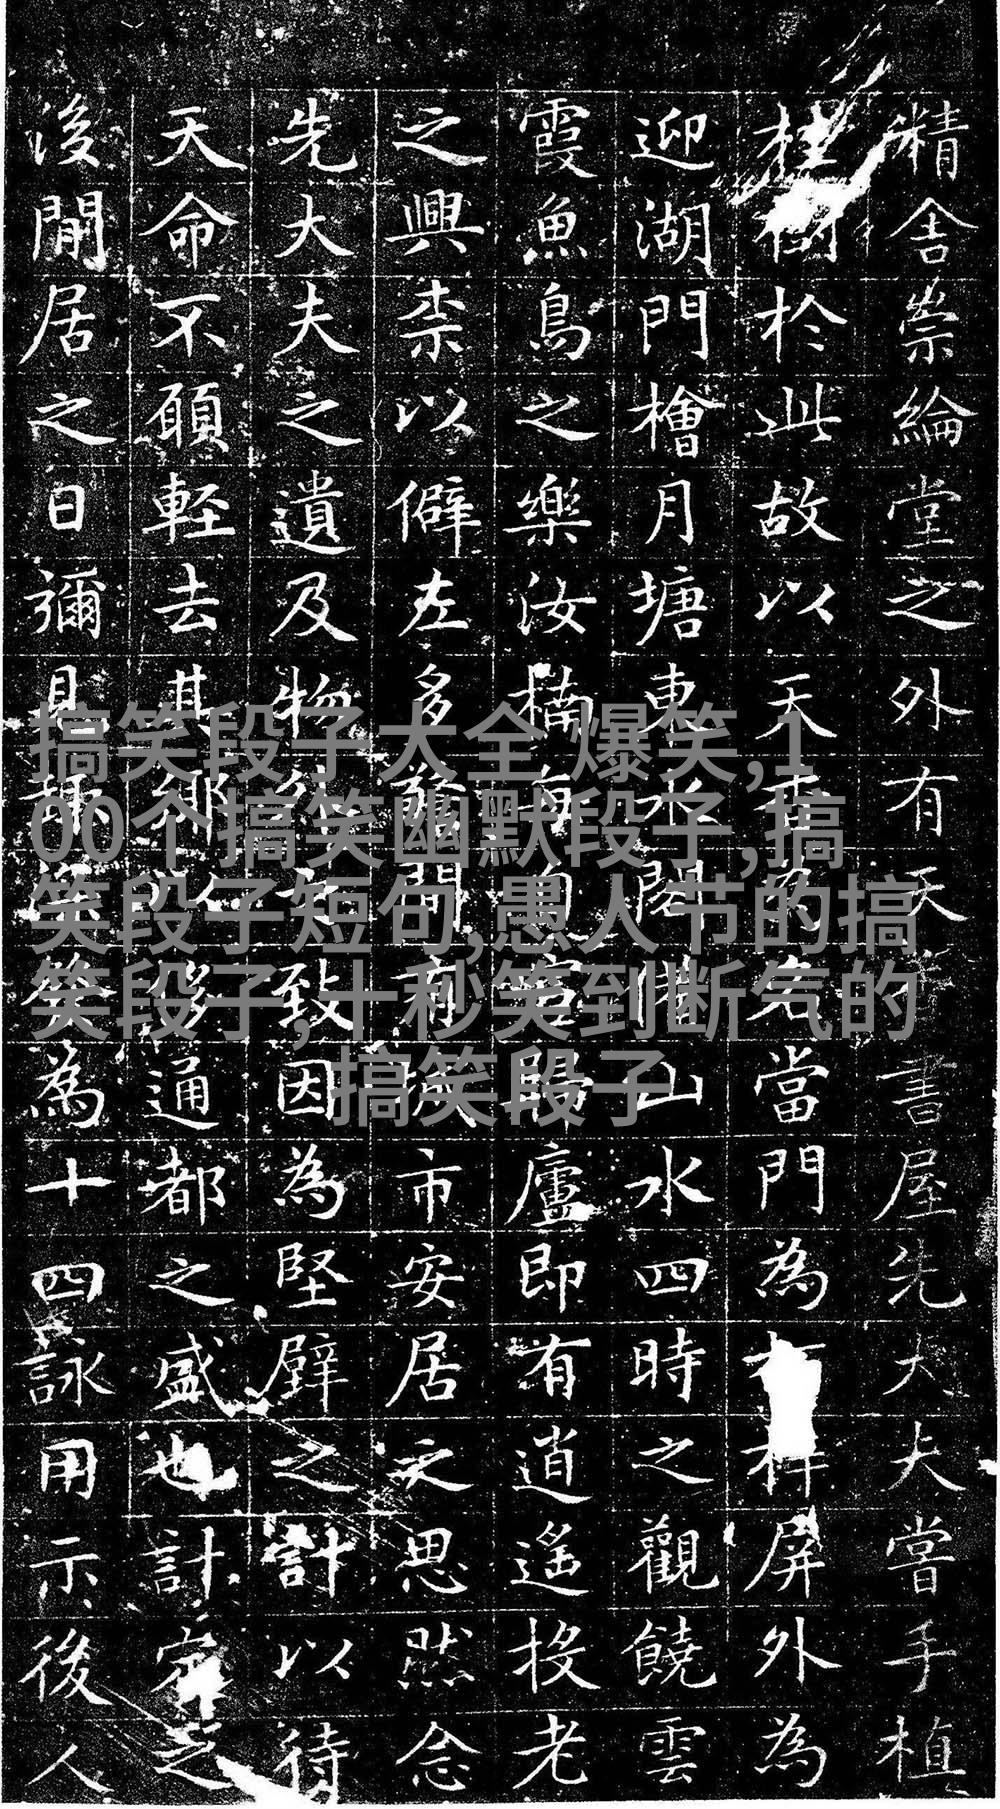 精舍崇綸堂之外有天書屋先大夫嘗手植
桂樹於此故以天名當門為屏外為
迎湖門檜月塘東水閣山水四時之觀饒雲
霞魚鳥之樂汝楠每自宦歸廬即有逍遙投老
之興柰以僻左多市安居之思然念
先大夫之遺及物致因為堅壁之計以待
天命不願輕去其鄉以通都之盛也計定之
後閒居之日彌見為十四詠用示後人
搞笑段子大全 爆笑,1
00个搞笑幽默段子,搞
笑段子短句,愚人节的搞
笑段子,十秒笑到断气的
搞笑段子